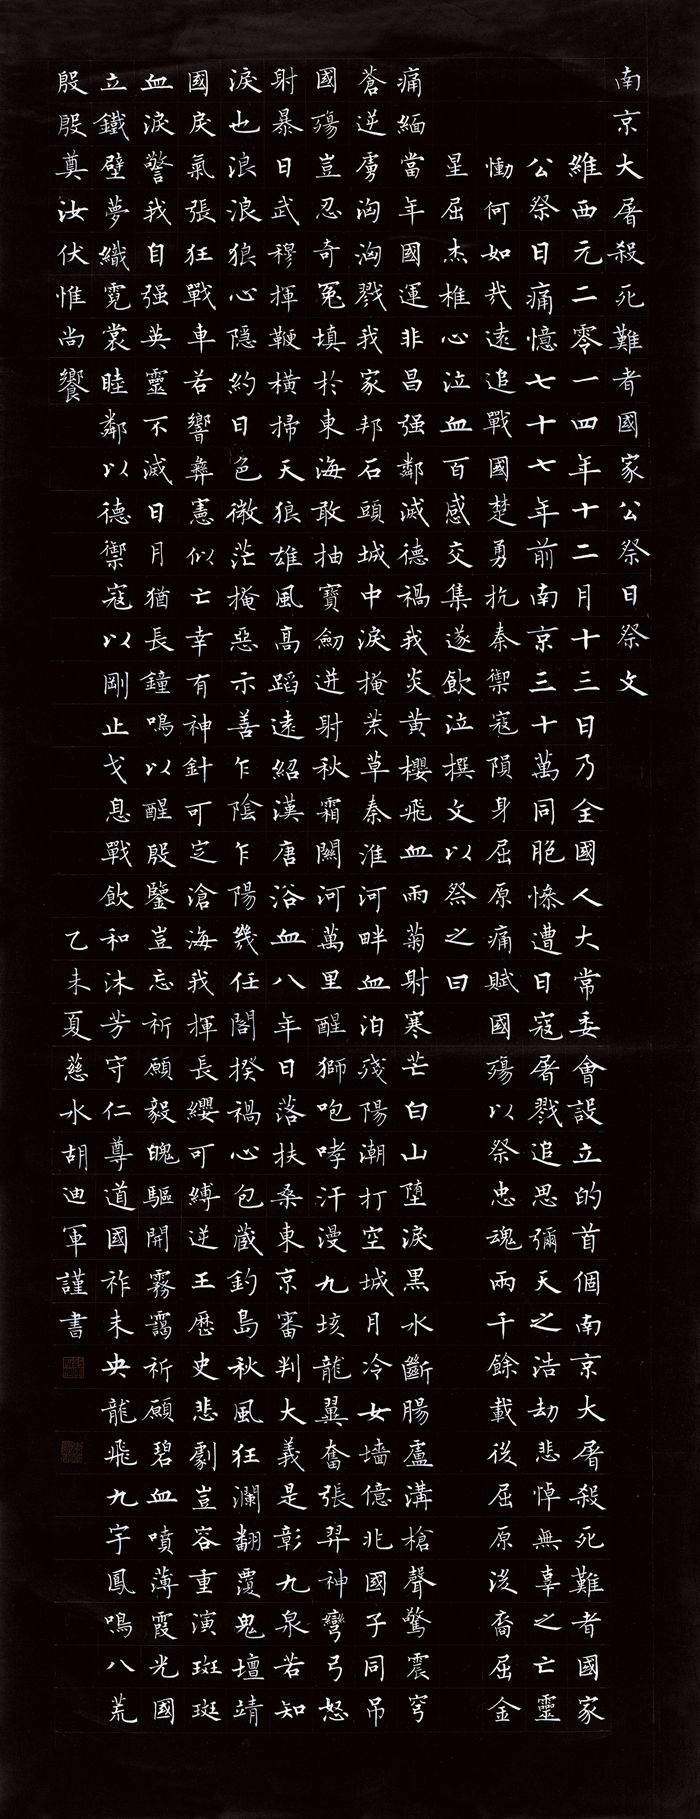 南京大屠殺死難者國家公祭日祭文
維西元二零一四年十二月十三日乃全國人大常委會設立的首個南京大屠殺死難者國家
公祭日痛憶七十七年前南京三十萬同胞慘遭日寇屠戮追思彌天之浩劫悲悼無辜之亡靈
慟何如哉遠追戰國楚勇抗秦禦寇隕身屈原痛賦國殤以祭忠魂兩千餘載後屈原後裔屈金
星屈杰椎心泣血百感交集遂飲泣撰文以祭之曰
痛緬當年國運非昌强鄰滅德禍我炎黃櫻飛血雨菊射寒芒白山墮淚黑水斷腸盧溝槍聲驚震穹
蒼逆虜洶洶戮我家邦石頭城中淚掩荒草秦淮河畔血泊殘陽潮打空城月冷女墻億兆國子同吊
國殤豈忍奇冤填於東海敢抽寶劍迸射秋霜關河萬里醒獅咆哮汗漫九垓龍翼奮張羿神彎弓怒
射暴日武穆揮鞭橫掃天狼雄風高蹈遠紹漢唐浴血八年日落扶桑東京審判大義是彰九泉若知
淚也浪浪狼心隱約日色微茫掩惡示善乍陰乍陽幾任閣揆禍心包藏釣島秋風狂瀾翻覆鬼壇靖
國戾氣張狂戰車若響彝憲似亡幸有神針可定滄海我揮長纓可縛逆王歷史悲劇豈容重演斑斑
血淚警我自强英靈不滅日月猶長鐘鳴以醒殷鑒豈忘祈願毅魄驅開霧靄祈願碧血噴薄霞光國
立鐵壁夢織霓裳睦鄰以德禦寇以剛止戈息戰飲和沐芳守仁尊道國祚未央龍飛九宇鳳鳴八荒
殷殷奠汝伏惟尚饗
乙未夏慈水胡迪軍謹書